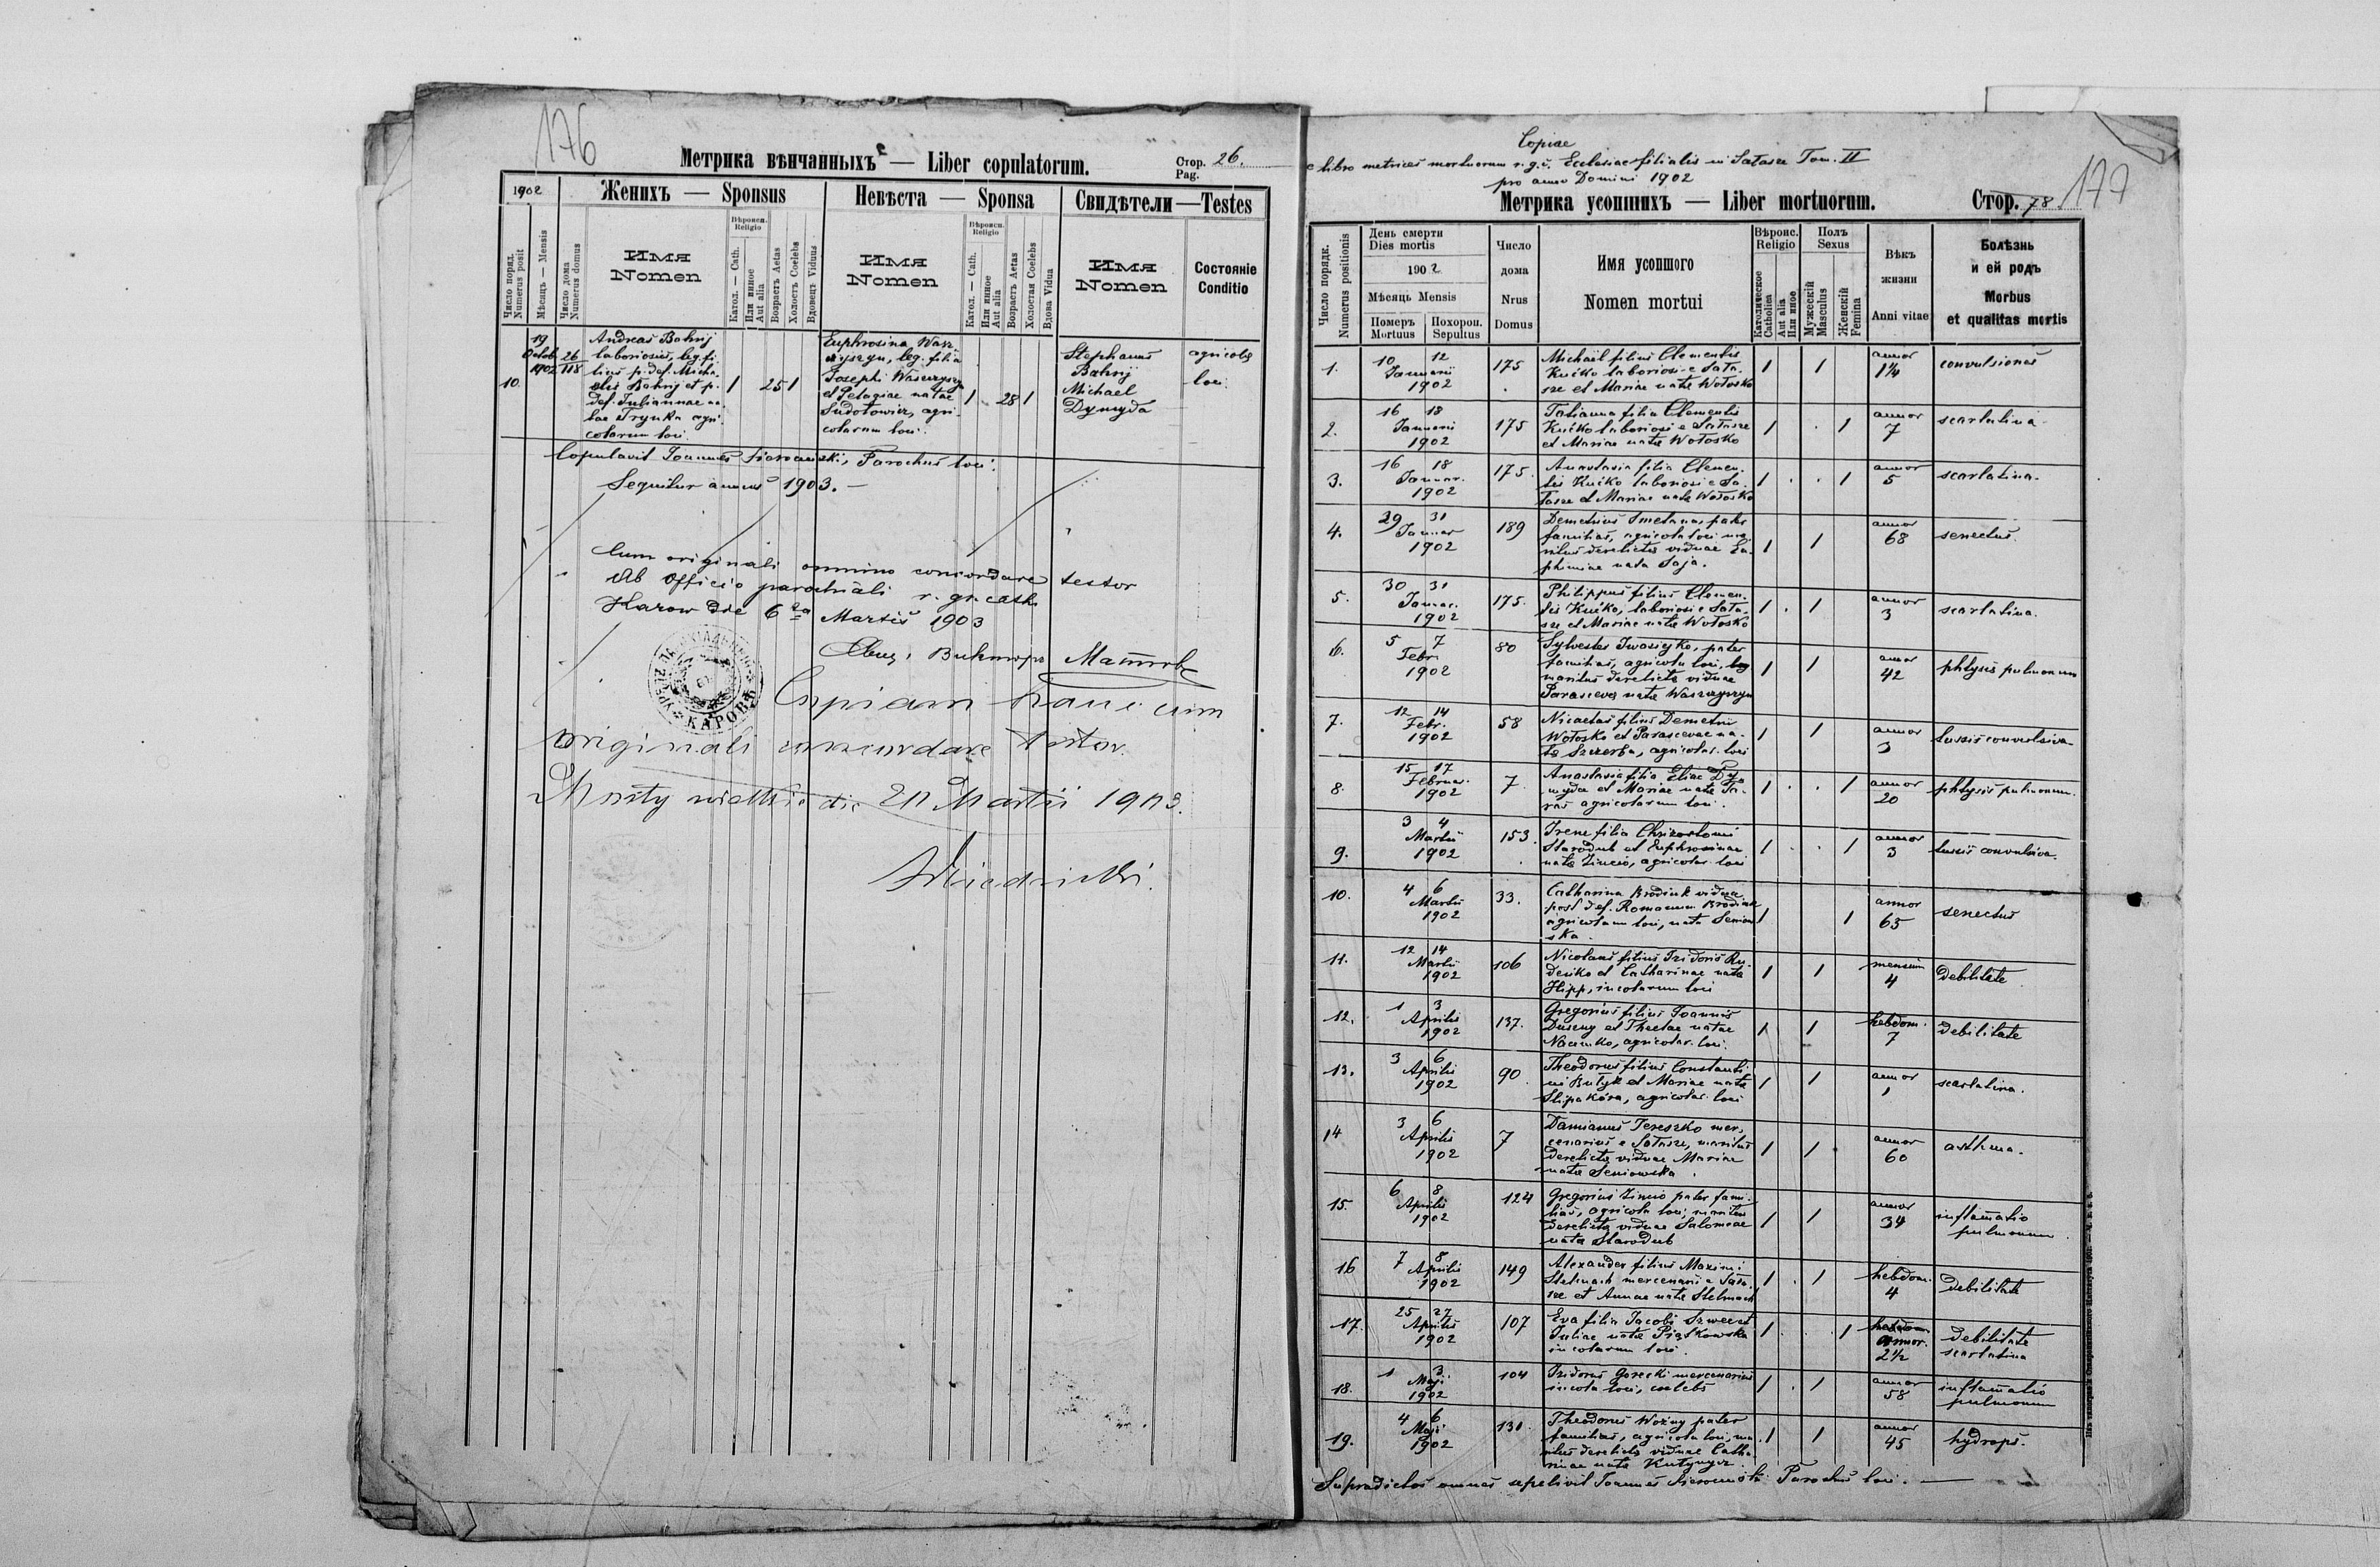 176
Метрика вѣнчанныхъ — Liber copulatorum.
Стор. 26.
Pag.
1902
Женихъ — Sponsus
Невѣста — Sponsa
Свидѣтели—Testes
Число поряд.
Numerus posit
Мѣсяцъ — Mensis
Число дома
Numerus domus
Имя
Nomen
Вѣроисп.
Religio
Катол. — Cath.
Или инное
Aut alia
Возрастъ Aetas
Холостъ Coelebs
Вдовецъ Viduus
Имя
Nomen
Вѣроисп.
Religio
Катол. — Cath.
Или инное
Aut alia
Возрастъ Aetas
Холостая Coelebs
Вдова Vidua
Имя
Nomen
Состояніе
Conditio
10.
19
Octob
1902
26
118
Andreas Bahrij
laboriosus, leg. fi-
lius p. def. Micha-
elis Bahrij et p.
def. Juliannae na-
tae Trynka agri-
colarum loci.
1 25 1
Euphrosina Wasz-
czyszyn, leg. filia
Josephi Waszczyszyn
et Pelagiae natae
Sudotowicz, agri-
colarum loci.
1 28 1
Stephanus
Bahrij
Michael
Dymyda
agricolae
loci
Copulavit Joannes Sierociński, Parochus loci.
Sequitur annus 1903. —
Cum originali omnino concordare testor
Ab officio parochiali r. gr. cath.
Karow die 6ta Martii 1903
Викторъ Матювъ
КАРОВѢ
Copiam hanc cum
originali concordare testor.
Mosty wielkie die 20 Martii 1903.
177
Copiae
e libro metrices mortuorum r. g. c. Ecclesiae filialis in Satasze Tom. II
pro anno Domini 1902
Метрика усопшихъ — Liber mortuorum.
Стор. 78
Число порядк.
Numerus positionis
День смерти
Dies mortis
1902
Мѣсяць Mensis
Померъ
Mortuus
Похорон.
Sepultus
Число
дома
Nrus
Domus
Имя усопшого
Nomen mortui
Вѣроис.
Religio
Католическое
Catholica
Aut alia
Или инное
Полъ
Sexus
Мужескій
Masculus
Женскій
Femina
Вѣкъ
жизни
Anni vitae
Болѣзнь
и ей родъ
Morbus
et qualitas mortis
1. 10 12 Januarii 1902 175
Michaël filius Clementis
Kućko laboriosi e Sata-
sze et Mariae natae Wołosko
1 1 annor 1 1/4 convulsiones
2. 16 18 Januarii 1902 175
Tatianna filia Clementis
Kućko laboriosi e Satasze
et Mariae natae Wołosko
1 1 annor 7 scarlatina
3. 16 18 Januar. 1902 175.
Anastasia filia Clemen-
tis Kućko laboriosi e Sa-
tasze et Mariae natae Wołosko
1 1 annor 5 scarlatina.
4. 29 31 Januar 1902 189
Demetrius Smetana, pater
familias, agricola loci ma-
ritus derelictae viduae Eu-
phimiae nata Soja.
1 1 annor 68 senectus.
5. 30 31 Januar. 1902 175.
Philippus filius Clemen-
tis Kućko, laboriosi e Sata-
sze et Mariae natae Wołosko
1 1 annor 3 scarlatina.
6. 5 7 Febr. 1902 80
Sylvester Iwasieczko, pater
familias, agricola loci,
maritus derelictae viduae
Parascevae natae Waszczyszyn
1 1 annor 42 phtysis pulmonum
7. 12 14 Febr. 1902 58
Nicaetas filius Demetrii
Wołosko et Parascevae na-
tae Szczerba, agricolar. loci
1 1 annor 3 tussis convulsiva
8. 15 17 Februar. 1902 7
Anastasia filia Eliae Dy-
myda et Mariae natae Ta-
ras agricolarum loci.
1 1 annor 20 phtysis pulmonum.
9. 3 4 Martii 1902 153.
Irene filia Chrizostomi
Starodub et Euphrosinae
natae Zincio, agricolar. loci
1 1 annor 3 tussis convulsiva.
10. 4 6 Martii 1902 33.
Catharina Brodiuk vidua
post def. Romanum Brodiuk
agricolam loci, nata Seniow-
ska.
1 1 annor 65 senectus
11. 12 14 Martii 1902 106
Nicolaus filius Izidoris Ru-
deńko et Catharinae natae
Hipp, incolarum loci
1 1 mensium 4 debilitate
12. 1 3 Aprilis 1902 137.
Gregorius filius Joannis
Duszny et Theclae natae
Naumko, agricolar. loci.
1 1 hebdom. 7 debilitate
13. 3 6 Aprilis 1902 90
Theodorus filius Constanti-
ni Butyk et Mariae natae
Slipakóra, agricolar. loci
1 1 annor 1 scarlatina.
14 3 6 Aprilis 1902 7
Damianus Tereszko mer-
cenarius e Satasze, maritus
derelictae viduae Mariae
natae Seniowska.
1 1 annor 60 asthma.
15. 6 8 Aprilis 1902 124
Gregorius Zincio pater fami-
lias, agricola loci, maritus
derelictae viduae Salomeae
nata Starodub
1 1 annor 34 inflamatio
pulmonum
16 7 8 Aprilis 1902 149
Alexander filius Maximi
Stelmach mercenarii e Sata-
sze et Annae natae Stelmach
1 1 hebdom. 4 debilitate
17. 25 27 Aprilis 1902 107
Eva filia Jacobi Szwec et
Juliae natae Piątkowska
incolarum loci.
1 1 annor. 2 1/2 debilitate
scarlatina
18. 1 3 Maji 1902 104
Izidorus Gorecki mercenarius
incola loci, coelebs
1 1 annor 58 inflamatio
pulmonum
19. 4 6 Maji 1902 131.
Theodorus Woźny pater
familias, agricola loci, ma-
ritus derelictae viduae Catha-
rinae natae Kutynycz
1 1 annor 45 hydrops.
Supradictos omnes sepelivit Joannes Sierociński Parochus loci. —